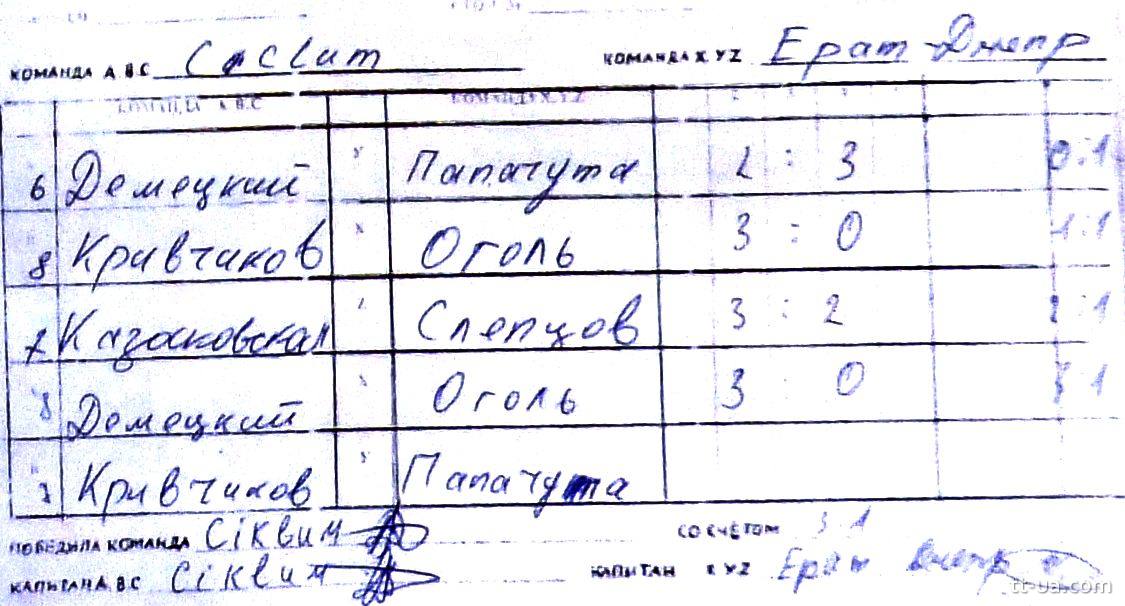 КОМАНДА А В С КОМАНДА X YZ Ерат-Днепр
КОМАНДА А.В.С КОМАНДА X.Y.Z
6 Демецкий х Папачута 2 : 3 0:1
8 Кривчиков х Оголь 3 : 0 1:1
Слепцов 3 : 2 2:1
Демецкий х Оголь 3 : 0 3:1
Кривчиков х Папачута
ПОБЕДИЛА КОМАНДА СО СЧЕТОМ 3:1
КАПИТАН А В С КАПИТАН X YZ Ерат Днепр
tt-ua.com